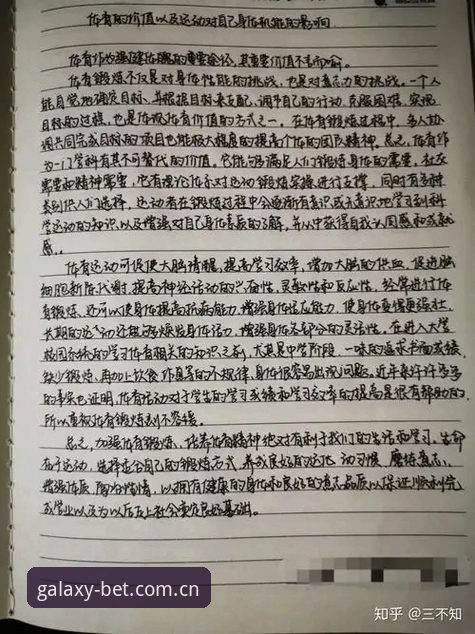 体育的价值以及运动对自己身体机能的影响
体育作为强健体魄的重要途径，其重要价值不言而喻。
体育锻炼不仅是对身体性能的挑战，也是对意志力的挑战。一个人
能自觉地确定目标，并根据目标来支配、调节自己的行动，克服困难，实现
目标的过程，也是体现体育价值的方式之一。在体育锻炼过程中，多人协
调共同完成目标的项目也能极大程度的提高个体的团队精神。总之，体育作
为一门学科有其不可替代的价值。它能够满足人们锻炼身体的需要，社交
需要和精神需要，它有理论体系对运动锻炼实操进行支撑，同时有多种
类别供人们选择，运动者在锻炼过程中会逐渐有意识或无意识地学习到科
学运动的知识以及增强对自己身体素质的了解，并从中获得自我认同感和成就
感。
体育运动可促使大脑清醒，提高学习效率，增加大脑的供血，促进脑
细胞新陈代谢，提高神经活动的兴奋性、灵敏性和反应性。经常进行体
育锻炼，还可以使身体提高抗病能力，增强身体适应能力，使身体变得更强壮，
长期的运动还能锻炼出身体活力，增强身体各部分的灵活性。在进入大学
校园系统的学习体育相关的知识之前，尤其是中学阶段，一味的追求书面成绩，
缺少锻炼，再加上饮食作息等的不规律，身体很容易出现问题。近年来许许多多
的事实也证明，体育活动对于学生的学习成绩和学习效率的提高是很有帮助的，
所以重视体育锻炼刻不容缓。
总之，加强体育锻炼，培养体育精神绝对有利于我们的生活和学习。生命
在于运动，选择适合自己的锻炼方式，养成良好的运动习惯，磨练意志、
增强体质、陶冶性情，以拥有健康的身体和良好的意志品质以保证顺利完
成学业以及为以后步上社会奠定良好基础。
galaxy-bet.com.cn
知乎 @三不知